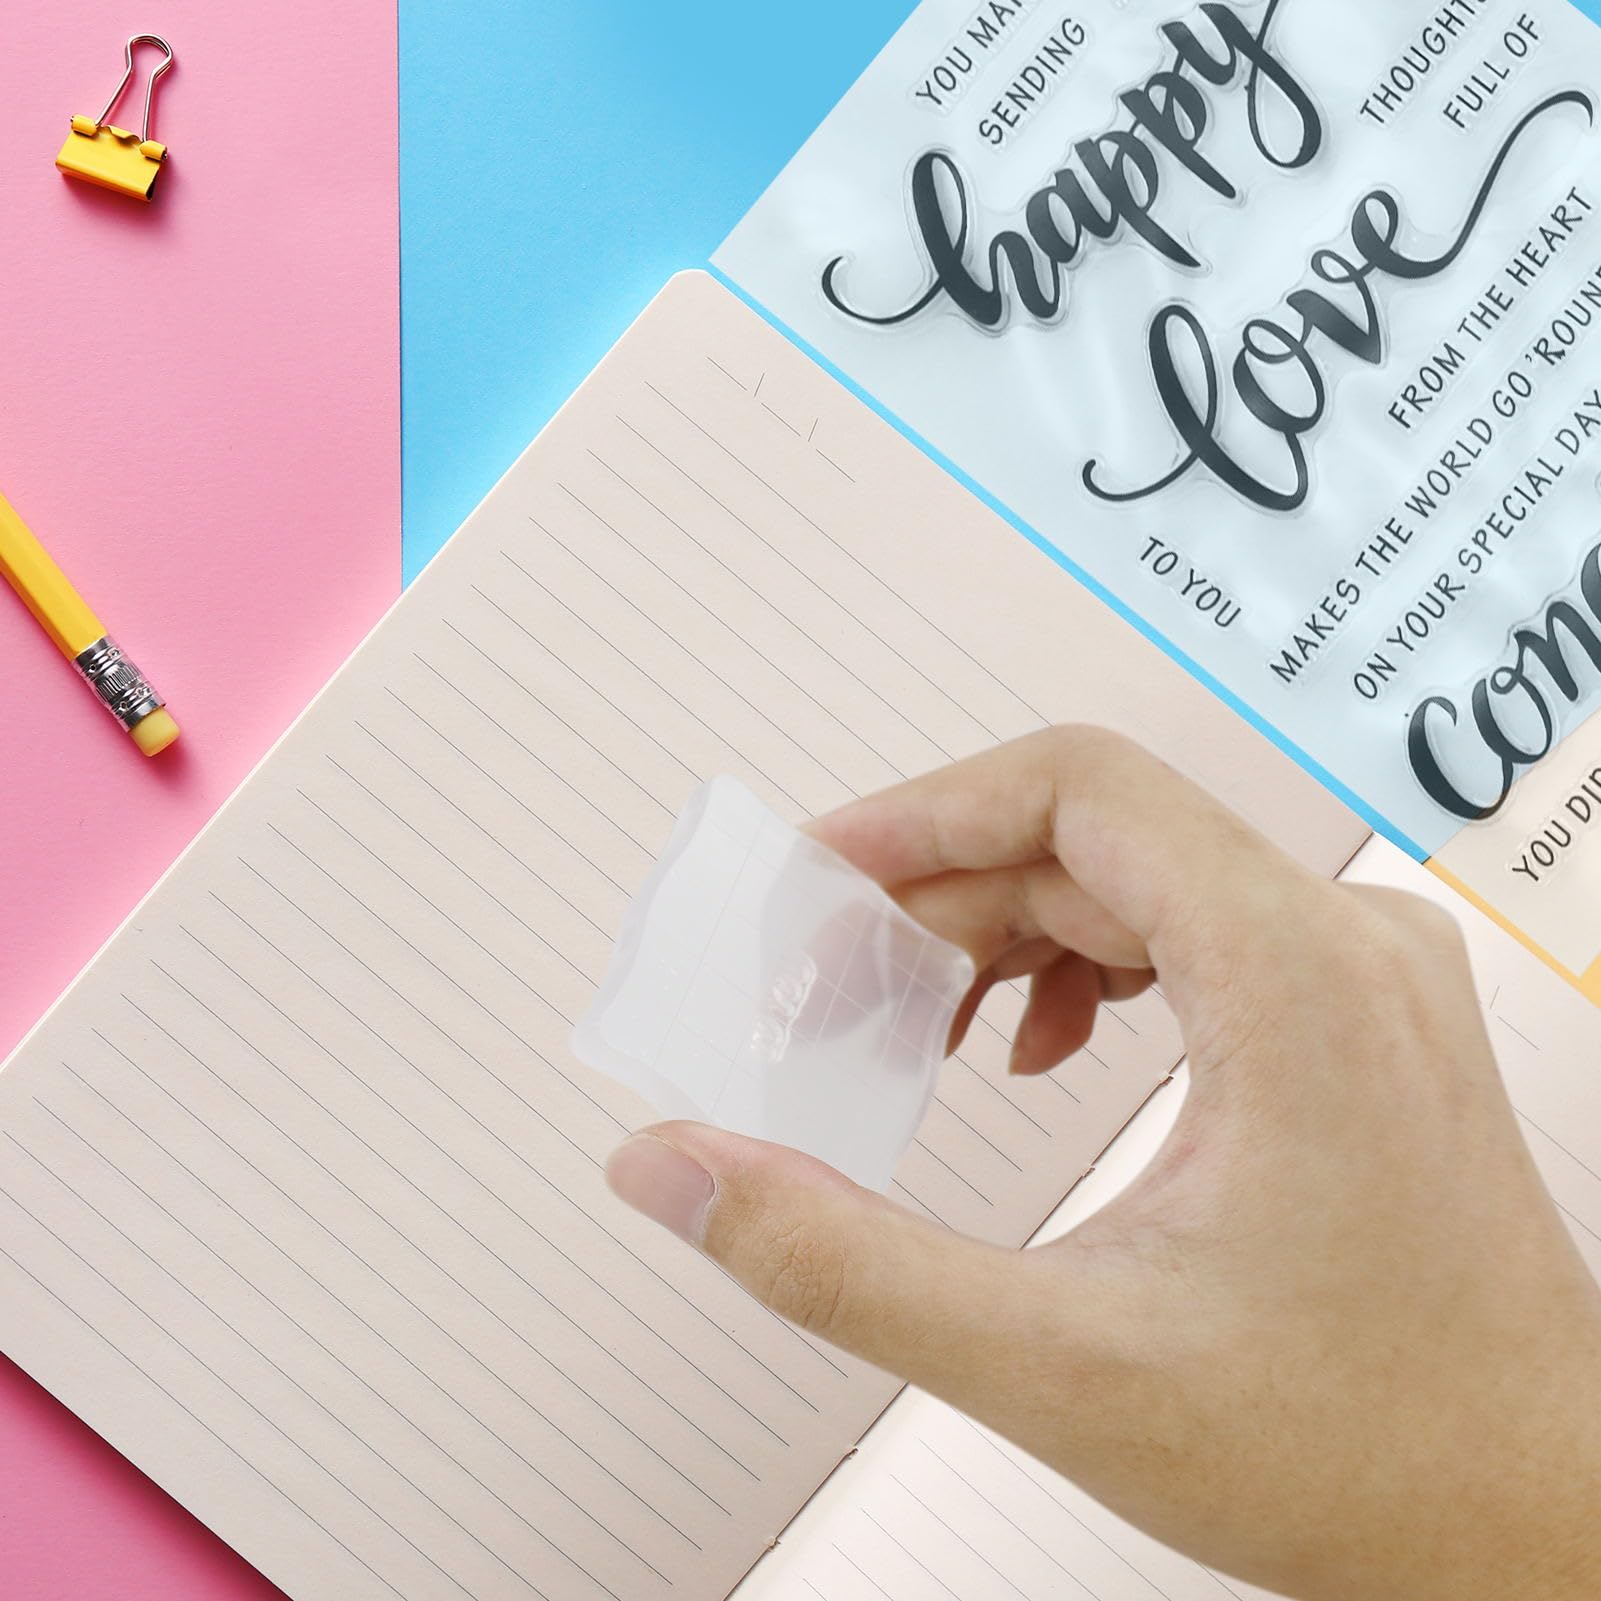 YOU MA
SENDING
happy
THOUGHTS
FULL OF
love
FROM THE HEART
TO YOU
MAKES THE WORLD GO 'ROUND
ON YOUR SPECIAL DAY
cong
YOU DI
hello